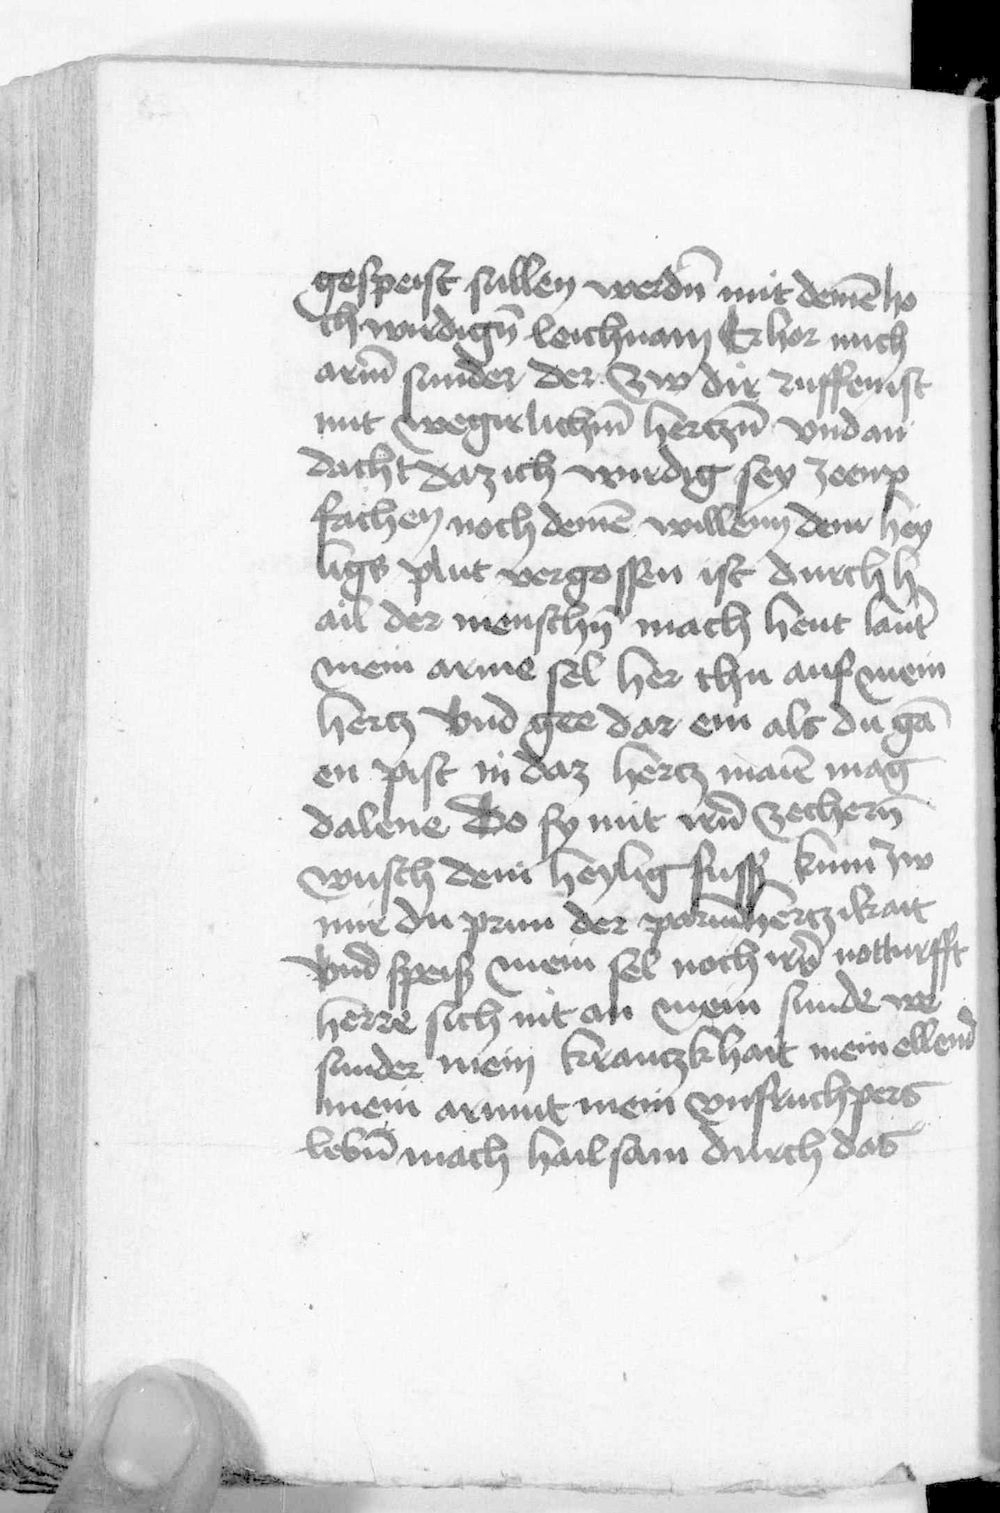 gespeist sullen werdn̄ mit deinē ho
ch wirdign̄ leichnam Er hor mich
arm̄ sunder der zw dir ruffen ist
mit wegirlichm̄ hertzn̄ vnd an
dacht daz ich wirdig sey ze enp
fachen noch deinē willenn dein hey
ligs plut vergossen ist durch h
ail der menschn̄ mach heut laut̄
mein arme sel her thu auf mein
hertz Vnd gee dar ein als du gā
en pist in daz hertz maiē mag
dalene Do sy mit irn̄ zechern̄
wusch dein heylig fuss kum zw
mir du prun der parmhertzikait
Vnd speis mein sel noch irer notturfft
herre sich nit an mein sunde we
sunder mein kranckhait mein ellend
mein armut mein vnfruchpers
lebn̄ mach hailsam durch das